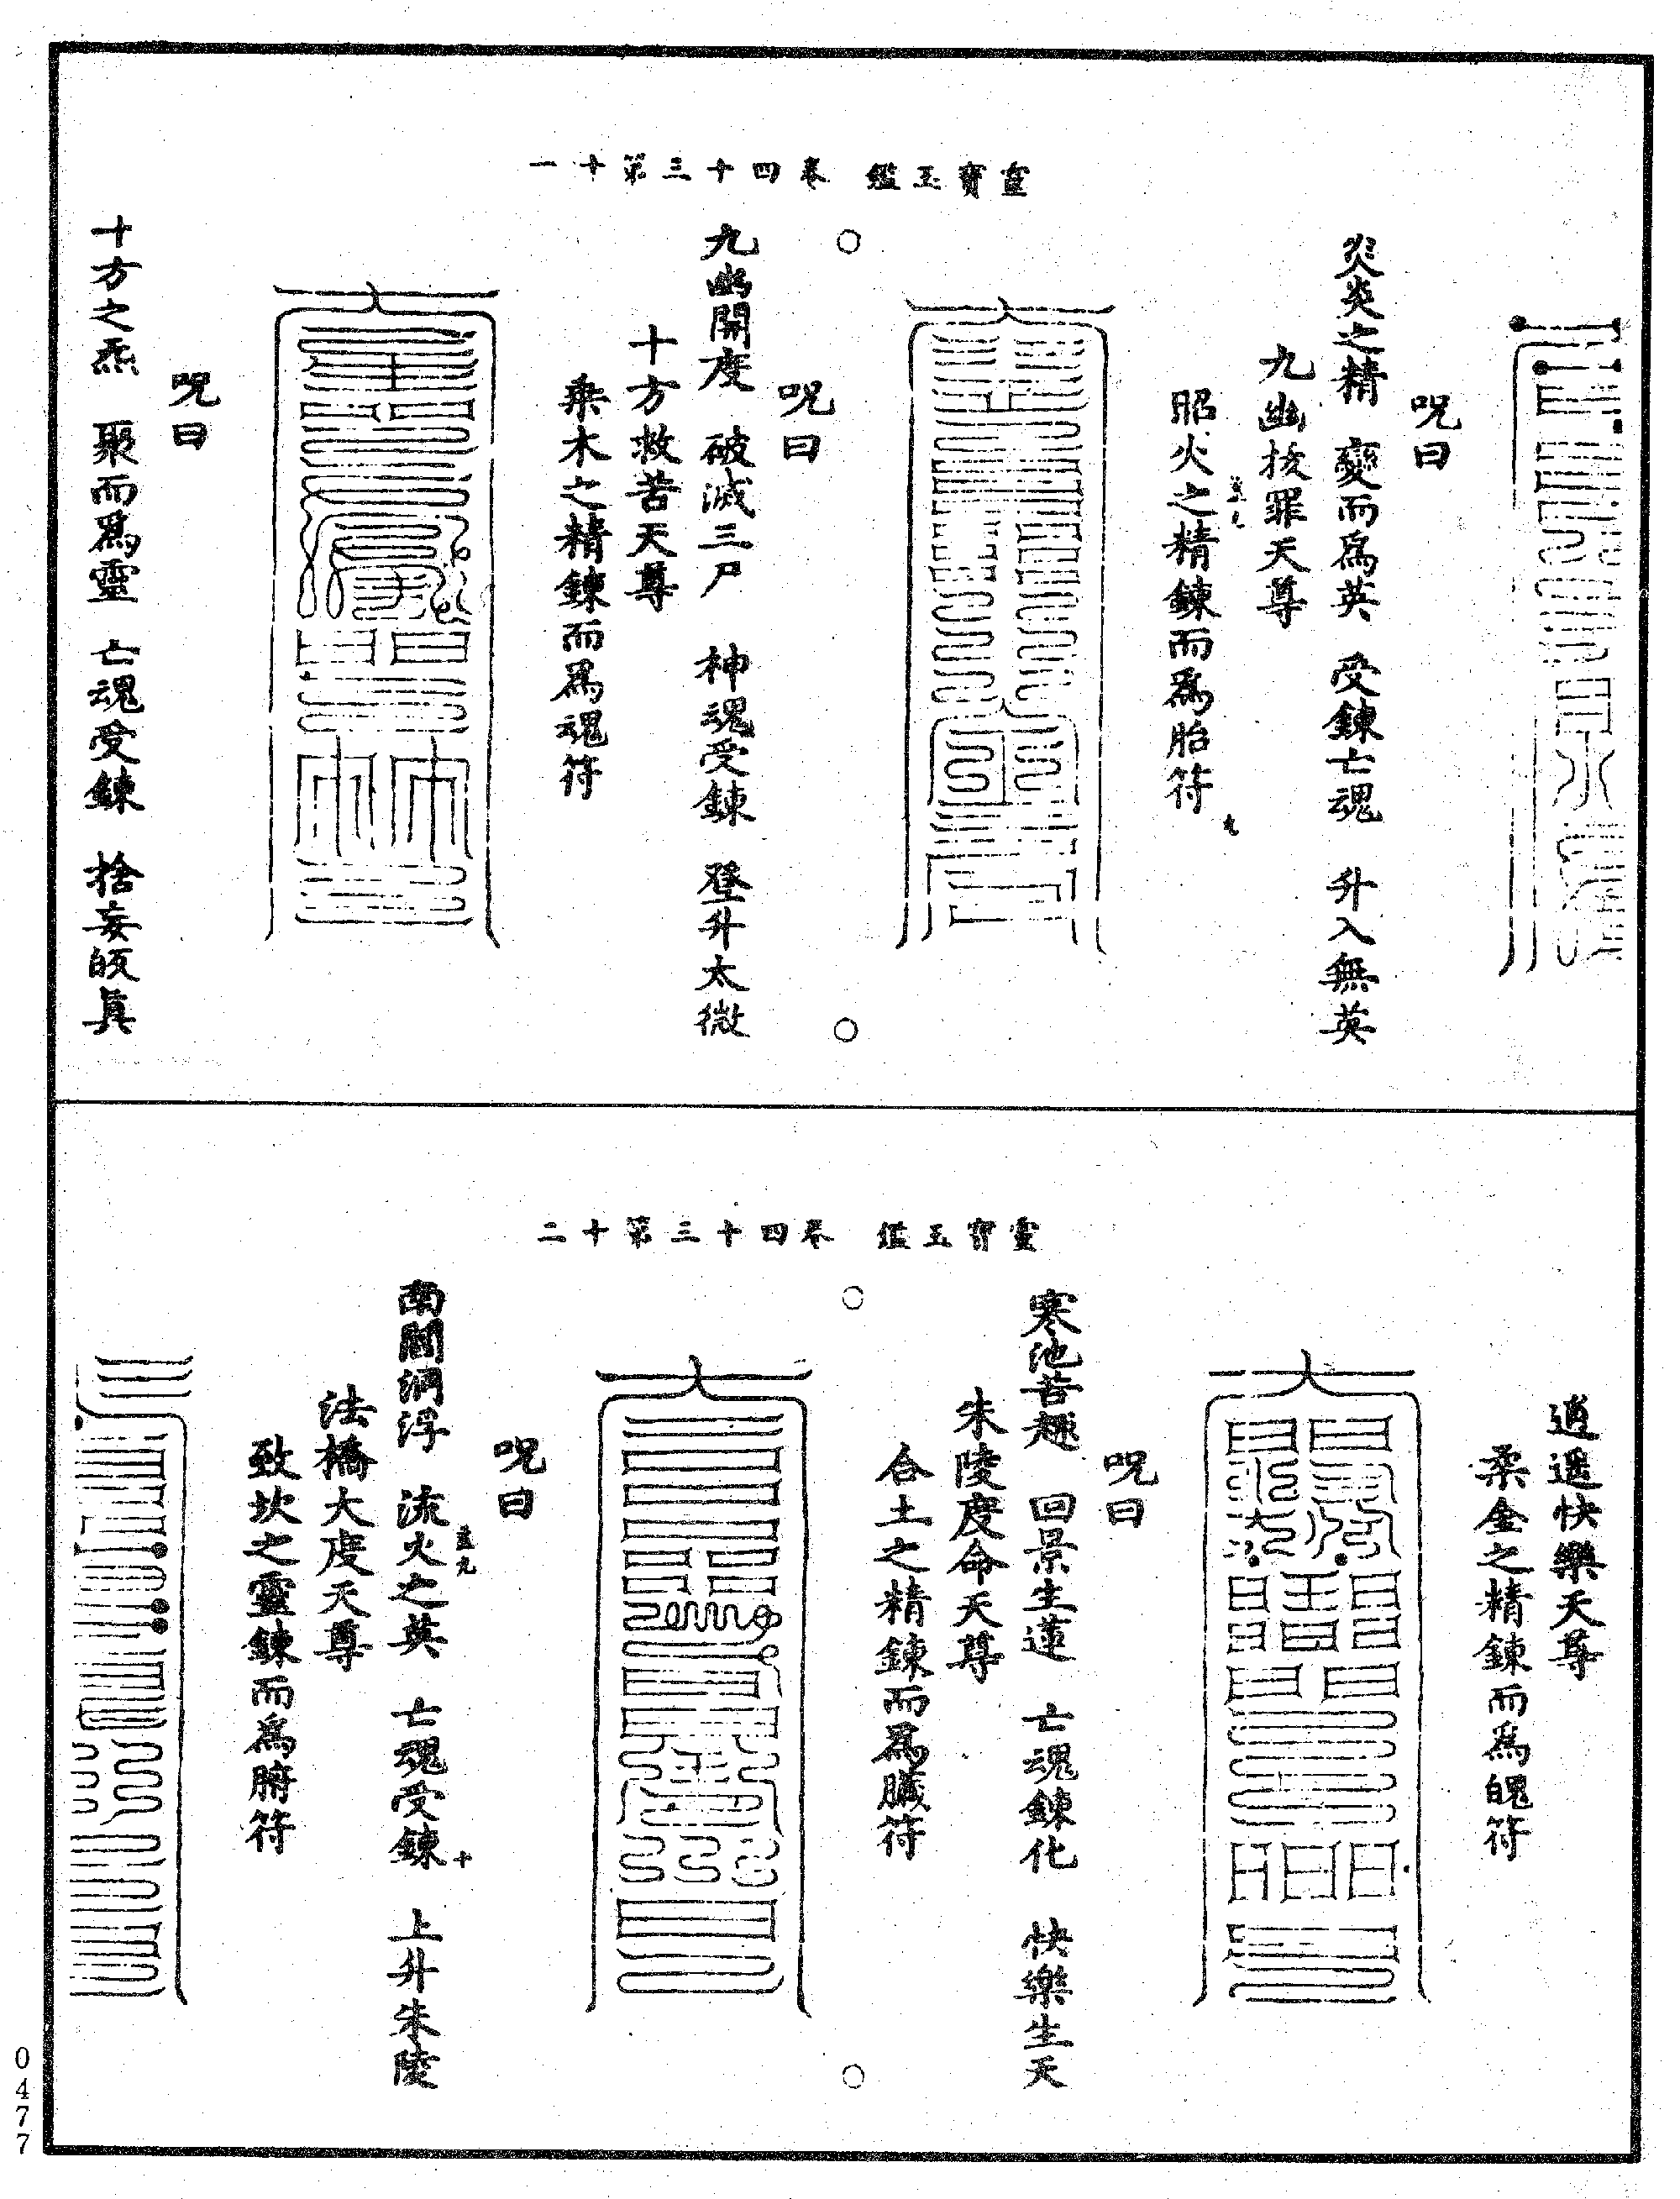 靈寶玉鑑　卷四十三第十一
呪曰
炎炎之精　變而爲英　受鍊亡魂　升入無英
九幽拔罪天尊
昭火之精鍊而爲胎符
呪曰
九幽開度　破滅三尸　神魂受鍊　登升太微
十方救苦天尊
乘木之精鍊而爲魂符
呪曰
十方之炁　聚而爲靈　亡魂受鍊　捨妄皈眞
靈寶玉鑑　卷四十三第十二
逍遥快樂天尊
柔金之精鍊而爲魄符
呪曰
寒池苦趣　回景生蓮　亡魂鍊化　快樂生天
朱陵度命天尊
合土之精鍊而爲臟符
呪曰
南閶洞浮　流火之英　亡魂受鍊　上升朱陵
法橋大度天尊
致坎之靈鍊而爲腑符
0477